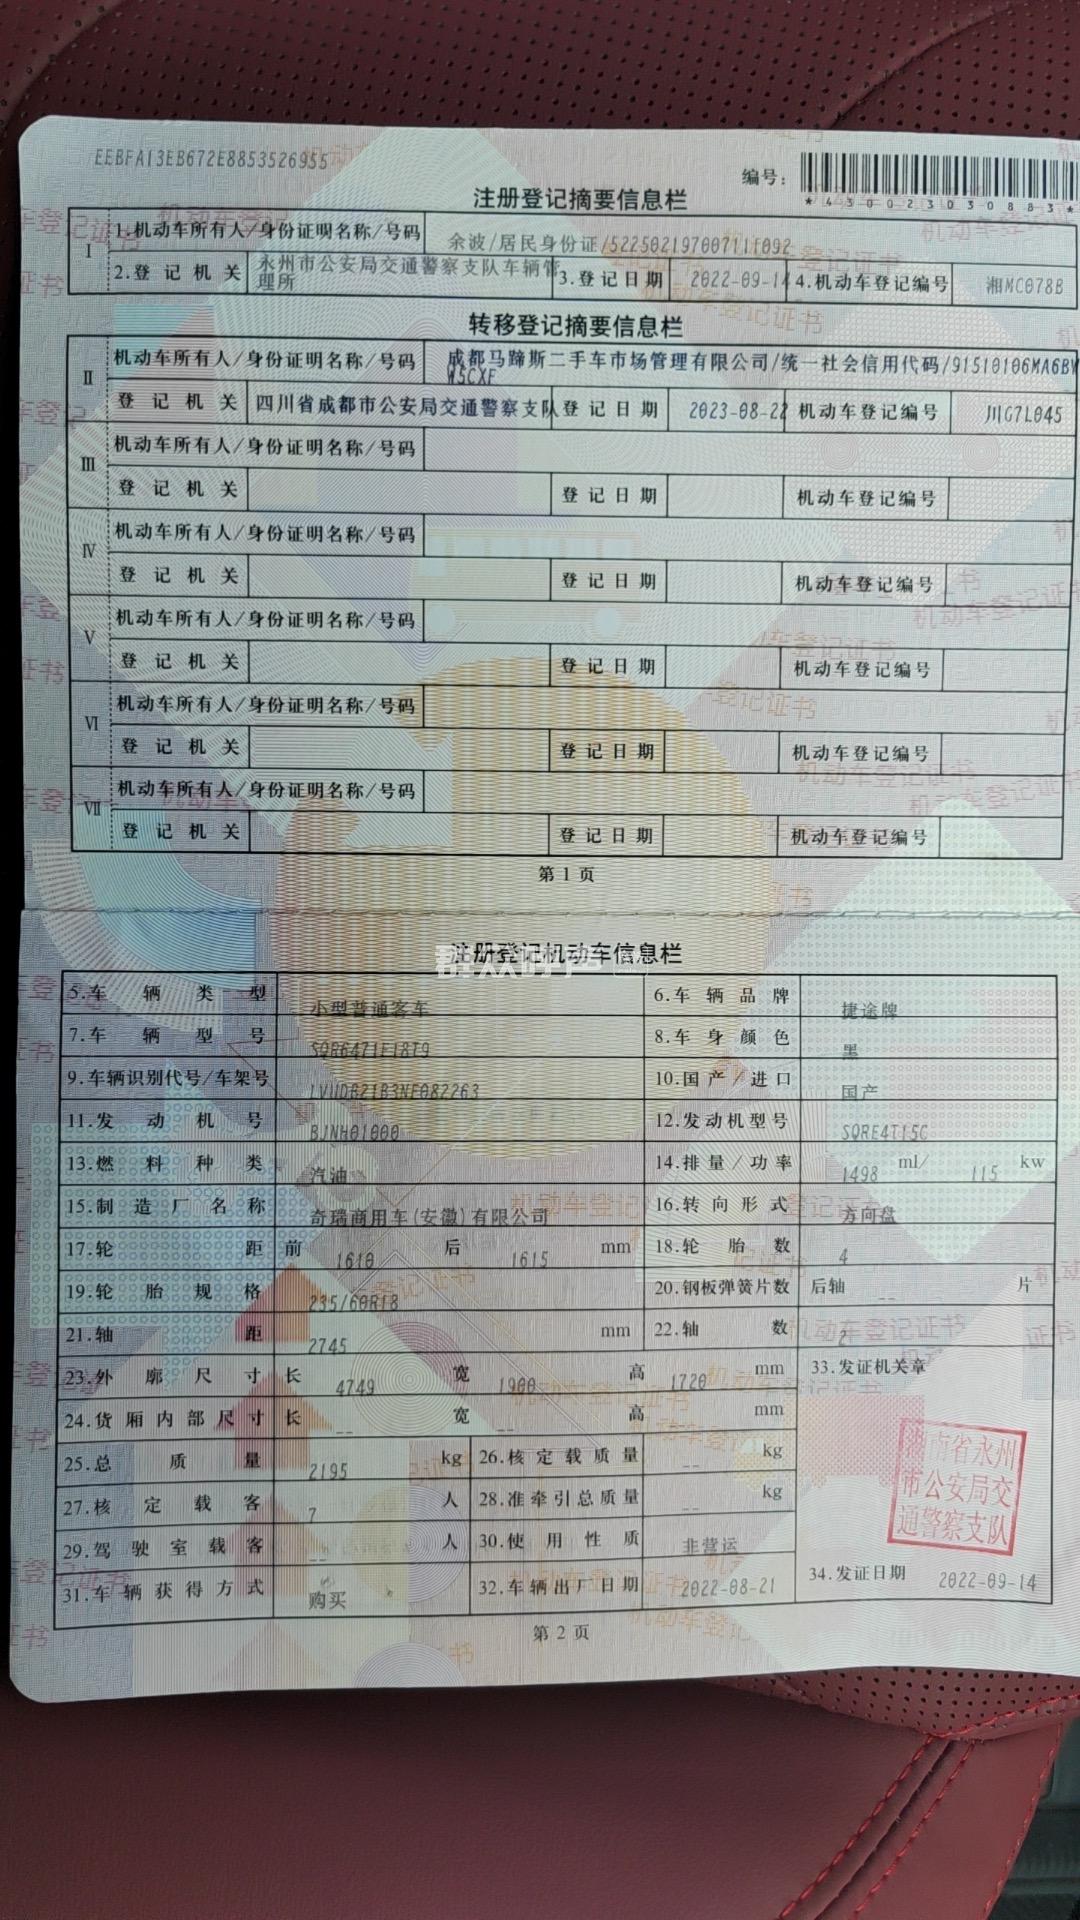 EEBFA13EB672E8853526955
编号：
*430023030883*
注册登记摘要信息栏
Ⅰ 1.机动车所有人/身份证明名称/号码 余波/居民身份证/
2.登记机关 永州市公安局交通警察支队车辆管理所 3.登记日期 2022-09-14 4.机动车登记编号 湘MC078B
转移登记摘要信息栏
Ⅱ 机动车所有人/身份证明名称/号码 成都马蹄斯二手车市场管理有限公司/统一社会信用代码/91510106MA6BW
W5CXF
登记机关 四川省成都市公安局交通警察支队 登记日期 2023-08-22 机动车登记编号 川G7L045
Ⅲ 机动车所有人/身份证明名称/号码
登记机关 登记日期 机动车登记编号
Ⅳ 机动车所有人/身份证明名称/号码
登记机关 登记日期 机动车登记编号
Ⅴ 机动车所有人/身份证明名称/号码
登记机关 登记日期 机动车登记编号
Ⅵ 机动车所有人/身份证明名称/号码
登记机关 登记日期 机动车登记编号
Ⅶ 机动车所有人/身份证明名称/号码
登记机关 登记日期 机动车登记编号
第1页
注册登记机动车信息栏
群众呼声
5.车辆类型 小型普通客车 6.车辆品牌 捷途牌
7.车辆型号 SQR6471F18T9 8.车身颜色 黑
9.车辆识别代号/车架号 LVUDB21B3NF082263 10.国产/进口 国产
11.发动机号 BJNH01000 12.发动机型号 SQRE4T15C
13.燃料种类 汽油 14.排量/功率 1498 ml/ 115 kw
15.制造厂名称 奇瑞商用车(安徽)有限公司 16.转向形式 方向盘
17.轮距 前 1610 后 1615 mm 18.轮胎数 4
19.轮胎规格 235/60R18 20.钢板弹簧片数 后轴 -- 片
21.轴距 2745 mm 22.轴数 2
23.外廓尺寸 长 4749 宽 1900 高 1720 mm 33.发证机关章
24.货厢内部尺寸 长 -- 宽 -- 高 -- mm
25.总质量 2195 kg 26.核定载质量 -- kg
27.核定载客 7 人 28.准牵引总质量 -- kg
29.驾驶室载客 -- 人 30.使用性质 非营运
31.车辆获得方式 购买 32.车辆出厂日期 2022-08-21 34.发证日期 2022-09-14
湖南省永州
市公安局交
通警察支队
第2页